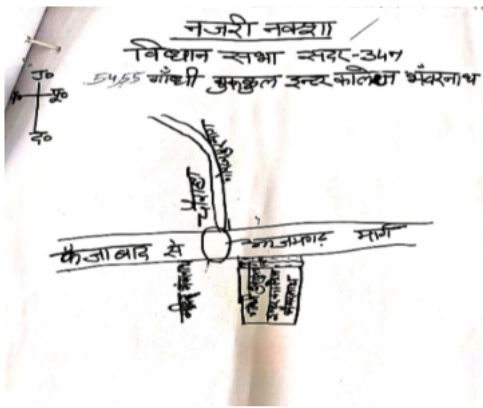 नजरी नक्शा
विधान सभा सदर-347
54,55 गाँधी गुरुकुल इन्टर कालेज भँवरनाथ
उ०
प० पू०
द०
चौराहा
फैजाबाद से आजमगढ़ मार्ग
गाँधी गुरुकुल
इन्टर कालेज
भँवरनाथ